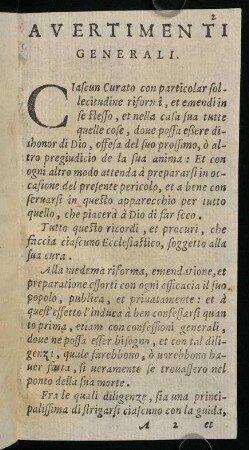 2
AVERTIMENTI
GENERALI.
CIascun Curato con particolar sol-
lecitudine riformi, et emendi in
se stesso, et nella casa sua tutte
quelle cose, doue possa essere dis-
honor di Dio, offesa del suo prossimo, ò al-
tro pregiudicio de la sua anima: Et con
ogni altro modo attenda à prepararsi in oc-
casione del presente pericolo, et a bene con
seruarsi in questo apparecchio per tutto
quello, che piacerà à Dio di far seco.
Tutto questo ricordi, et procuri, che
faccia ciascuno Ecclesiastico, soggetto alla
sua cura.
Alla medema riforma, emendatione, et
preparatione essorti con ogni efficacia il suo
popolo, publica, et priuatamente: et à
quest'effetto l'induca à ben confessarsi quan
to prima, etiam con confessioni generali,
doue ne possa esser bisogno, et con tal dili
genza, quale farebbono, ò vorebbono ha-
uer fatta, si veramente se trouassero nel
ponto della sua morte.
Fra le quali diligenze, sia una princi-
palissima di strigarsi ciascuno con la guida,
A 2 et